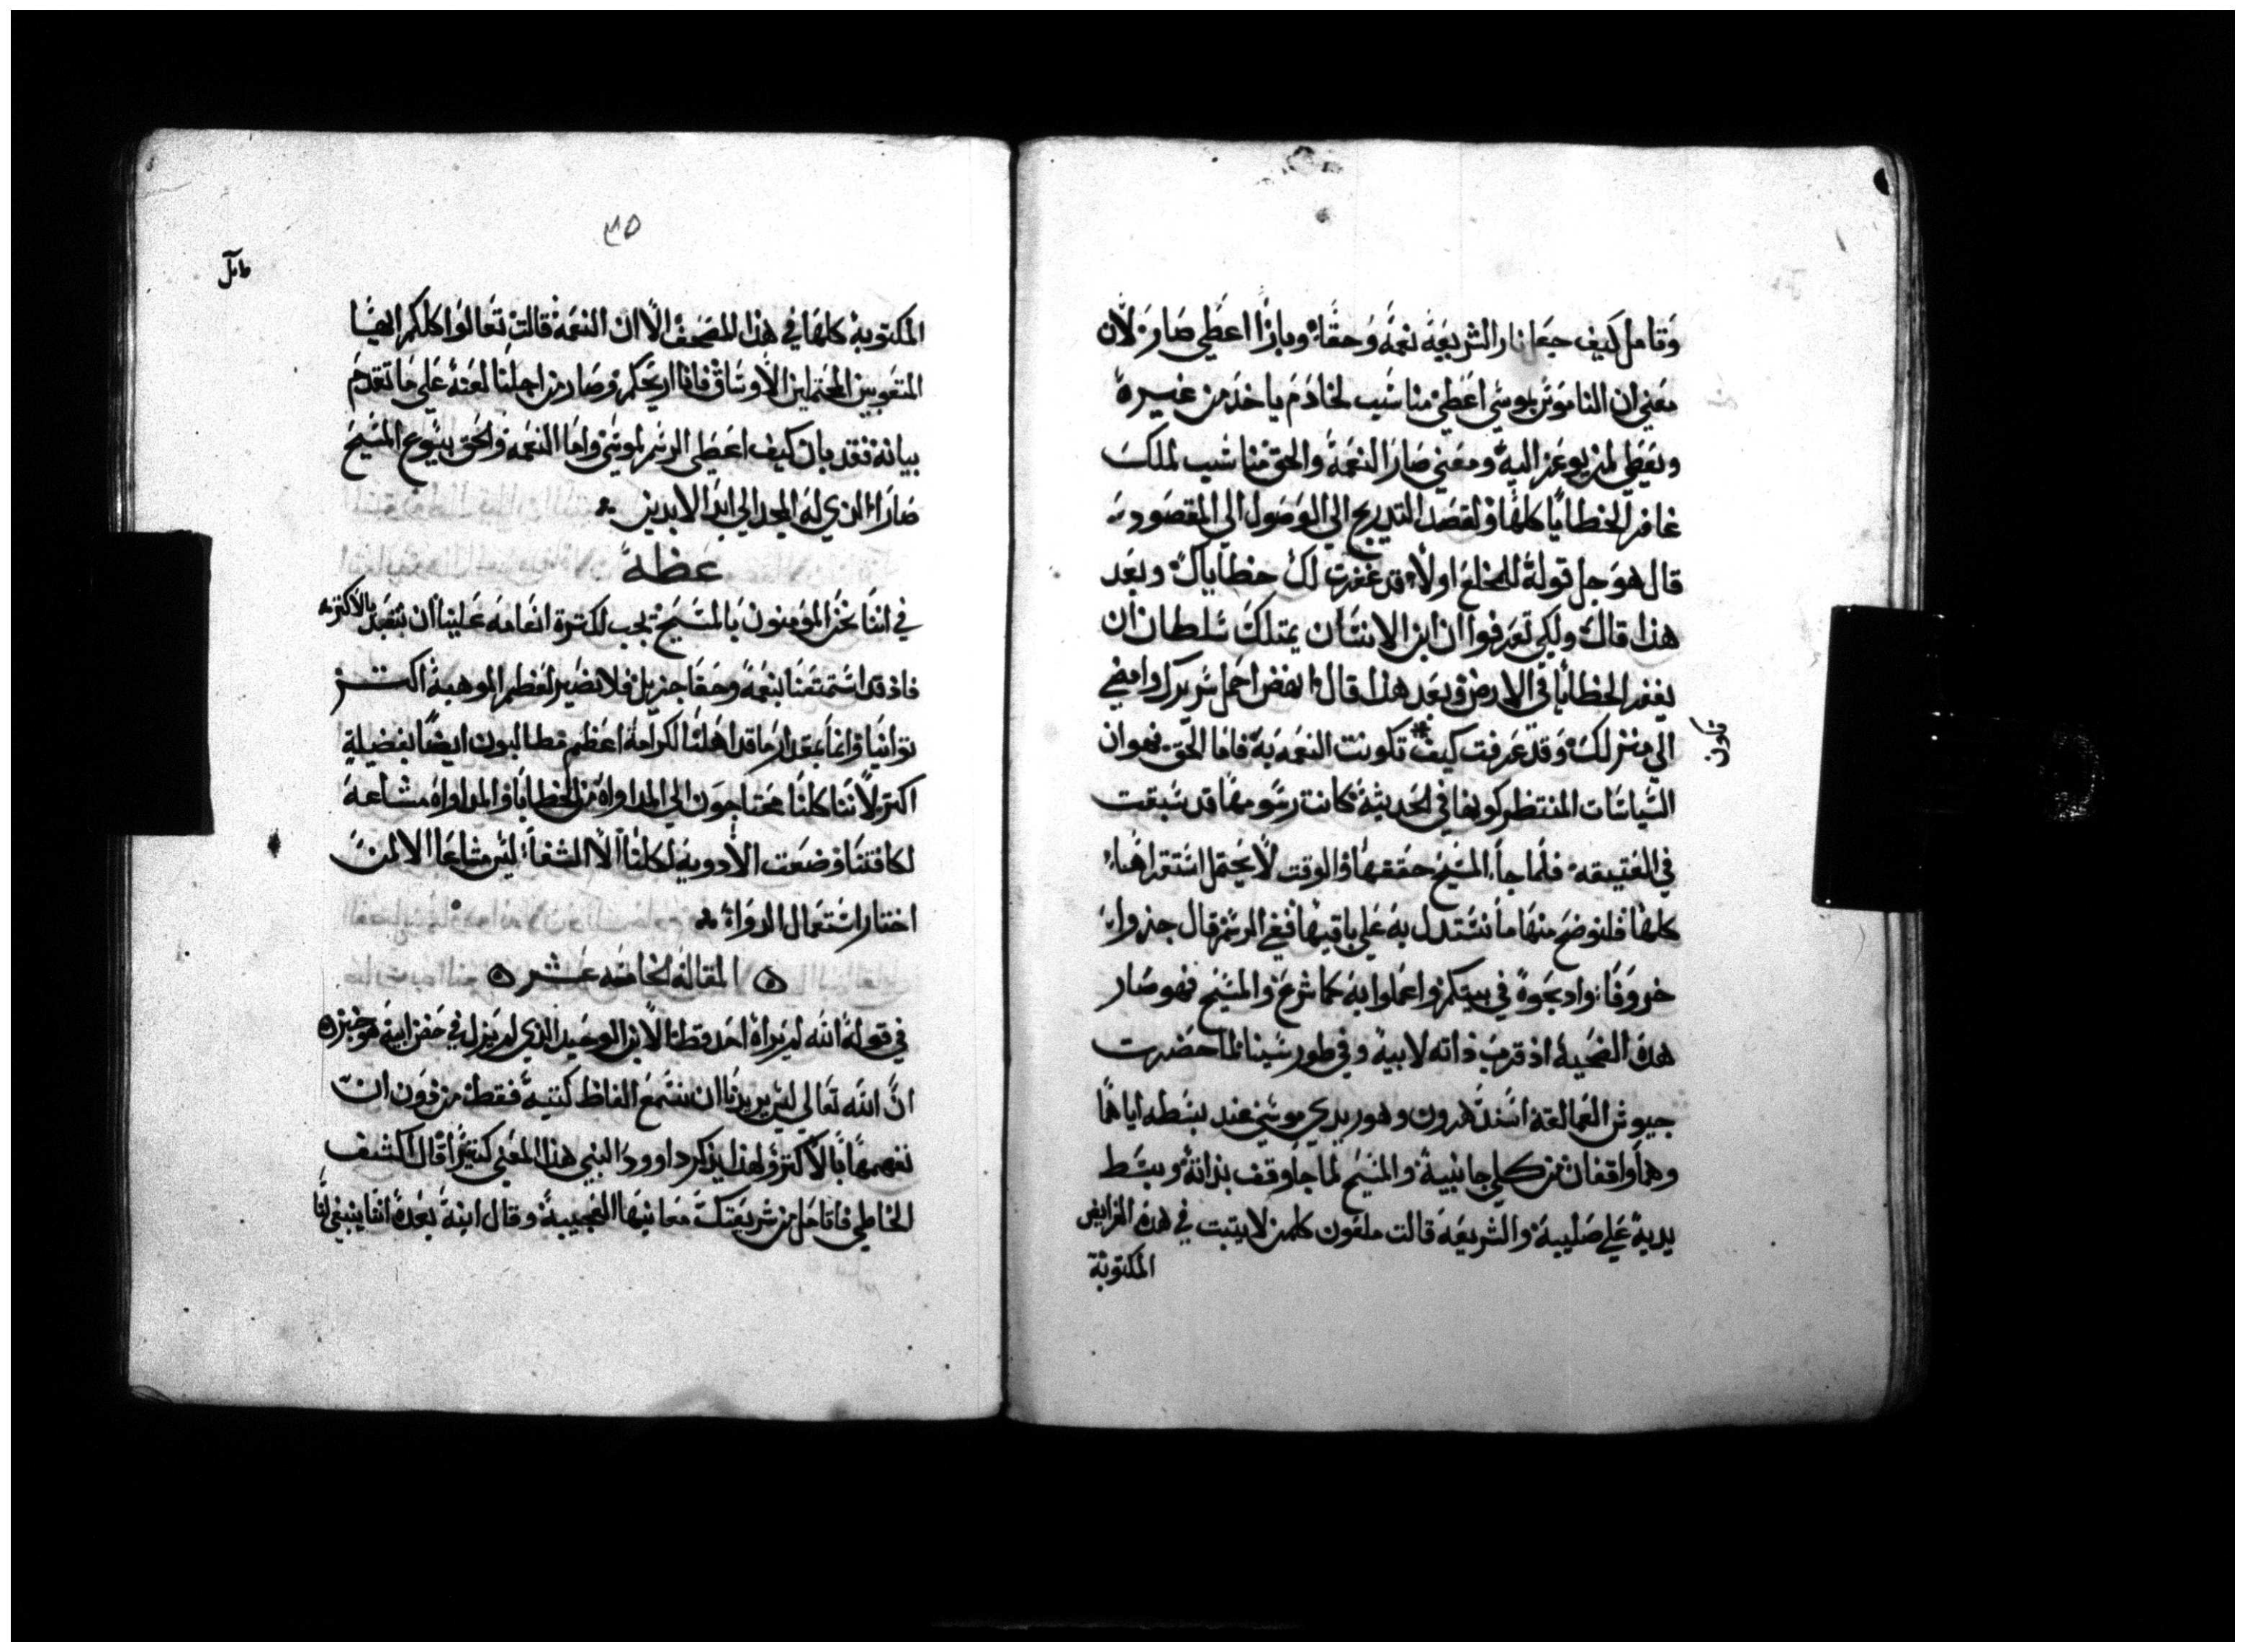 وَتامل كيف جعل نار الشريعَه نعمَه وَحقًا وبازا اعطَي صَارَ لأن
معَني ان الناموَس بموسَي اعَطَي مناسَب لخادَم ياخدَ من غيره
ويعَطي لمن يوعَز اليه ومعَني صَارَ النعَمَه والحق مناسَب لملك
غافر الخطايَا كلهَا ولقصَد التدريج الي الوَصَول الي المقصَود
قال هوَ جل قولهَ للمخلع اولاً قد غفرت لك خطاياك وبعَد
هذا قال ولكي تعَرفوا ان ابن الانسَان يمتلك سَلطان ان
يغفر الخطايا في الارض وبعَد هذا قال انهض احمل سَريرك وامضي
الي منزلك وَقد عَرفت كيف تكونت النعَمَه به فاما الحق فهو ان
السَياسَات المنتظر كونها في الحديثة كانت رسَومهَا قد سَبقت
في العَتيقه فلما جاء المسَيح حققهَا والوقت لا يحتمل اسَتقراهَا
كلهَا فلنوضح منهَا ما نسَتدل به عَلي باقيهَا ففي الرسَم قال جذوا
خروَفًا وادبحَوه في بيتكم واعمَلوا به كما شرعَ والمسَيح فهو صَار
هذه الضحَيه اذ قربَ ذاته لابيه وفي طور سَينا لما حضَرت
جيوش العَمالقة اسَند هَرون وهور يدي موسَي عند بسَطه اياهَما
وهمَا واقفان من كلي جانبيه والمسَيح لما جا وقف بذاته وبسَط
يديه عَلي صَليبه والشريعَه قالت ملعَون كلمن لا يتبت في هذه الفرايض
المكتوبة
٣٥
المكتوبه كلهَا في هذا المصَحف الا ان النعَمَه قالت تعَالوا كلكم اليا
المتعَوبين المحتملين الأوسَاق فانا اريحكم وصَار من اجلنا لعَنه عَلي ما تقدم
بيانه فقد بان كيف اعَطَي الرسَم لموسَي واما النعَمه والحق بيَسوع المسَيح
صَارَا الذي لهَ المجد الي ابدَ الابدين
عظه
في اننا نحَن المؤمنون بالمسَيح يجب لكترة انعَامه عَلينا ان نتفقد بالاكتر
فاذ قد اسَتمتعَنا بنعَمه وحقًا جزيل فلا نصَير لعَظم الموهبه اكتر
توانيًا وانما بمقدار ما قد اهلنا لكرامه اعظم مطالبون ايضًا بفضيلة
اكتر لأننا كلنا محتاجوَن الي المداواه من الخطايا والمداواه مشاعَه
لكافتنا وضعَت الأدويه لكلنا الا الشفا ليس مشاعَا الا لمن
اختار اسَتعَمال الدوَاء
المقالة الخامسَه عشر
في قوله الله لم يراه احَد قط الا الابن الوحَيد الذي لم يزل في حَضن ابيه هو خبرنا
انَّ الله تعَالي ليس يريدنا ان نسَتمعَ الفاظ كتبه فقط من دَون ان
نفهمهَا بالأكتر ولهذا يذكر داوود النبي هذا المعَني كتيرًا قال اكشف
الحَاطي فاتامَل من شريعَتك معَانيها العَجيبه وقال ابنه بعَده انما ينبغي لنا